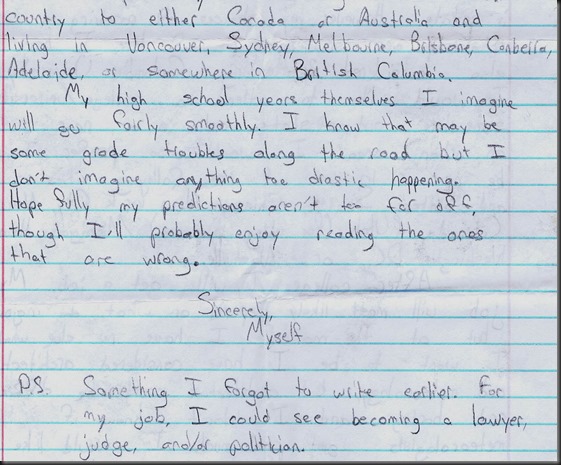 country to either Canada or Australia and
living in Vancouver, Sydney, Melbourne, Brisbane, Canberra,
Adelaide, or somewhere in British Columbia.
My high school years themselves I imagine
will go fairly smoothly. I know that may be
some grade troubles along the road but I
don't imagine anything too drastic happening.
Hopefully my predictions aren't too far off,
though I'll probably enjoy reading the ones
that are wrong.
Sincerely,
Myself
P.S. Something I forgot to write earlier. For
my job, I could see becoming a lawyer,
judge, and/or politician.